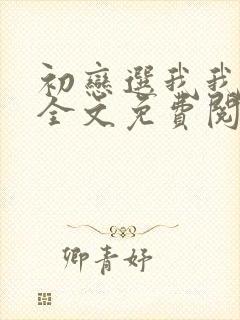 初戀選我我
全文免費閱
卿青妤